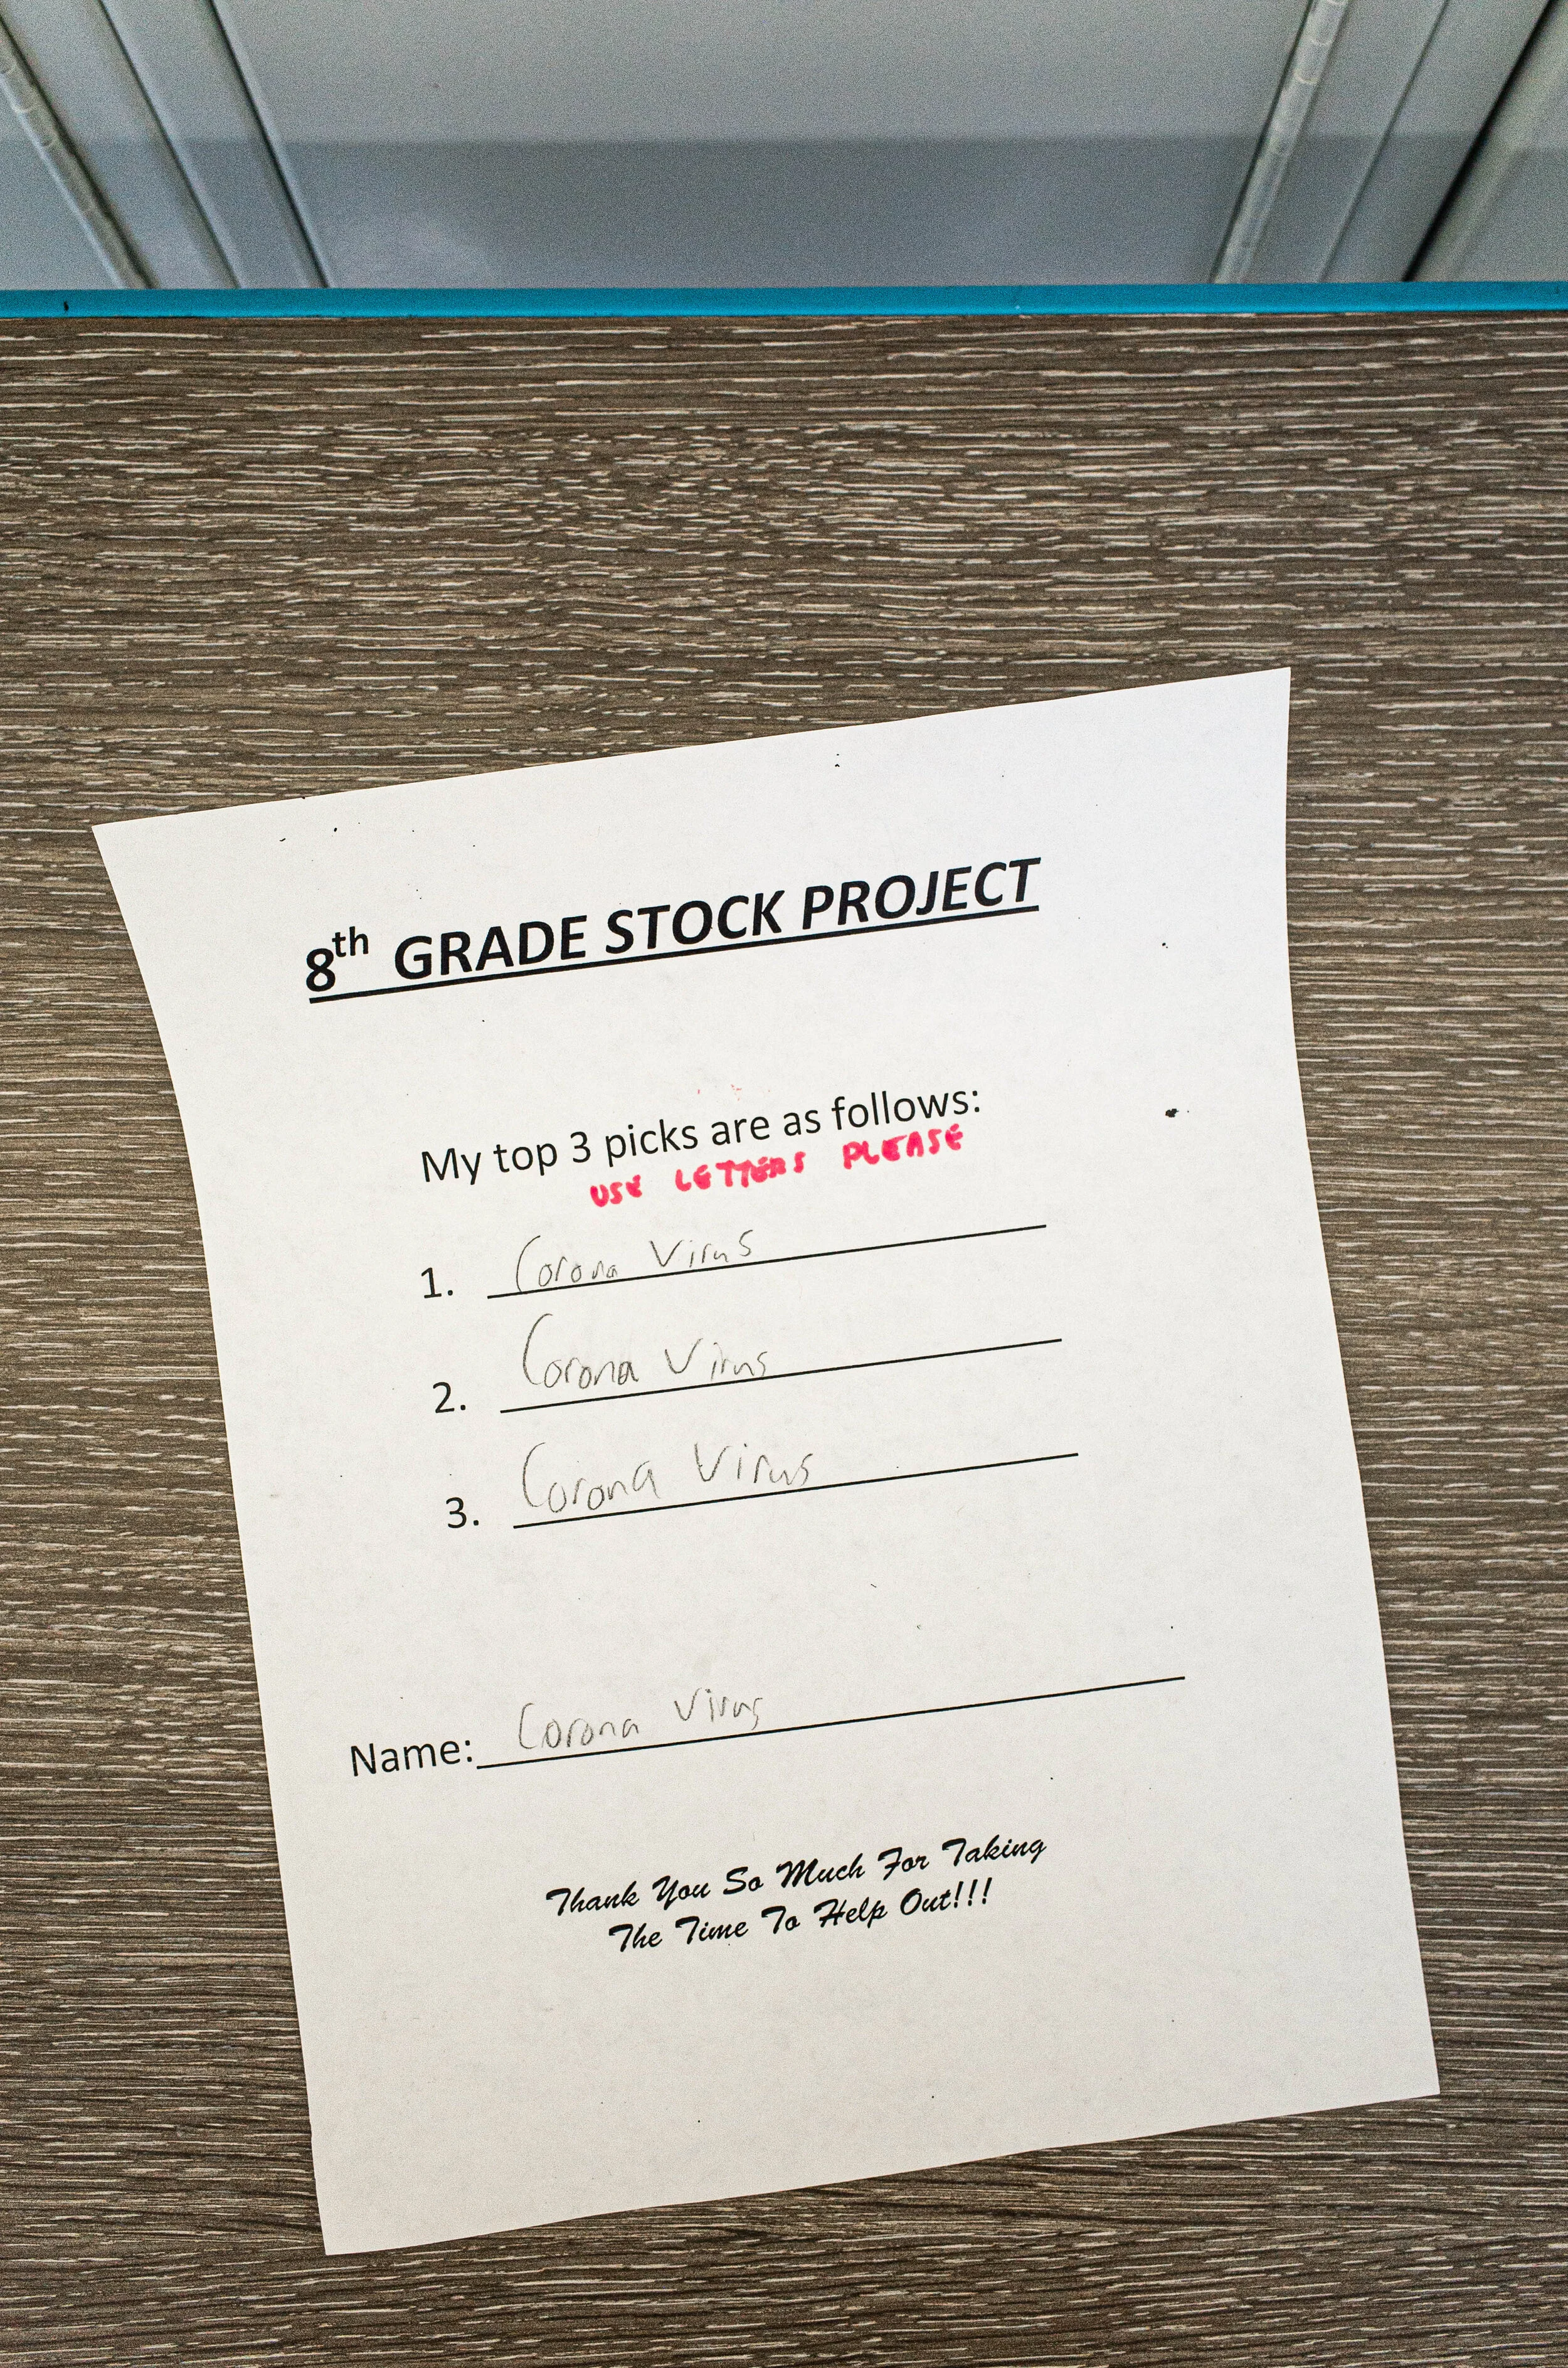 8th GRADE STOCK PROJECT
My top 3 picks are as follows:
USE LETTERS PLEASE
1. Corona Virus
2. Corona Virus
3. Corona Virus
Name: Corona Virus
Thank You So Much For Taking
The Time To Help Out!!!